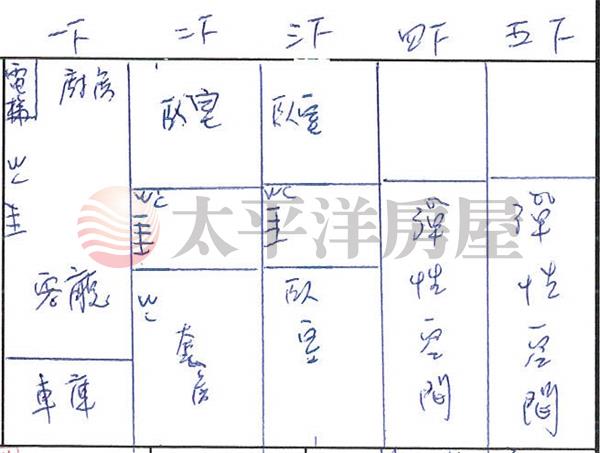 一下 二下 三下 四下 五下
電梯
廚房
WC
客廳
車庫
臥室
WC
WC
套房
臥室
WC
臥室
彈性空間
彈性空間
太平洋房屋